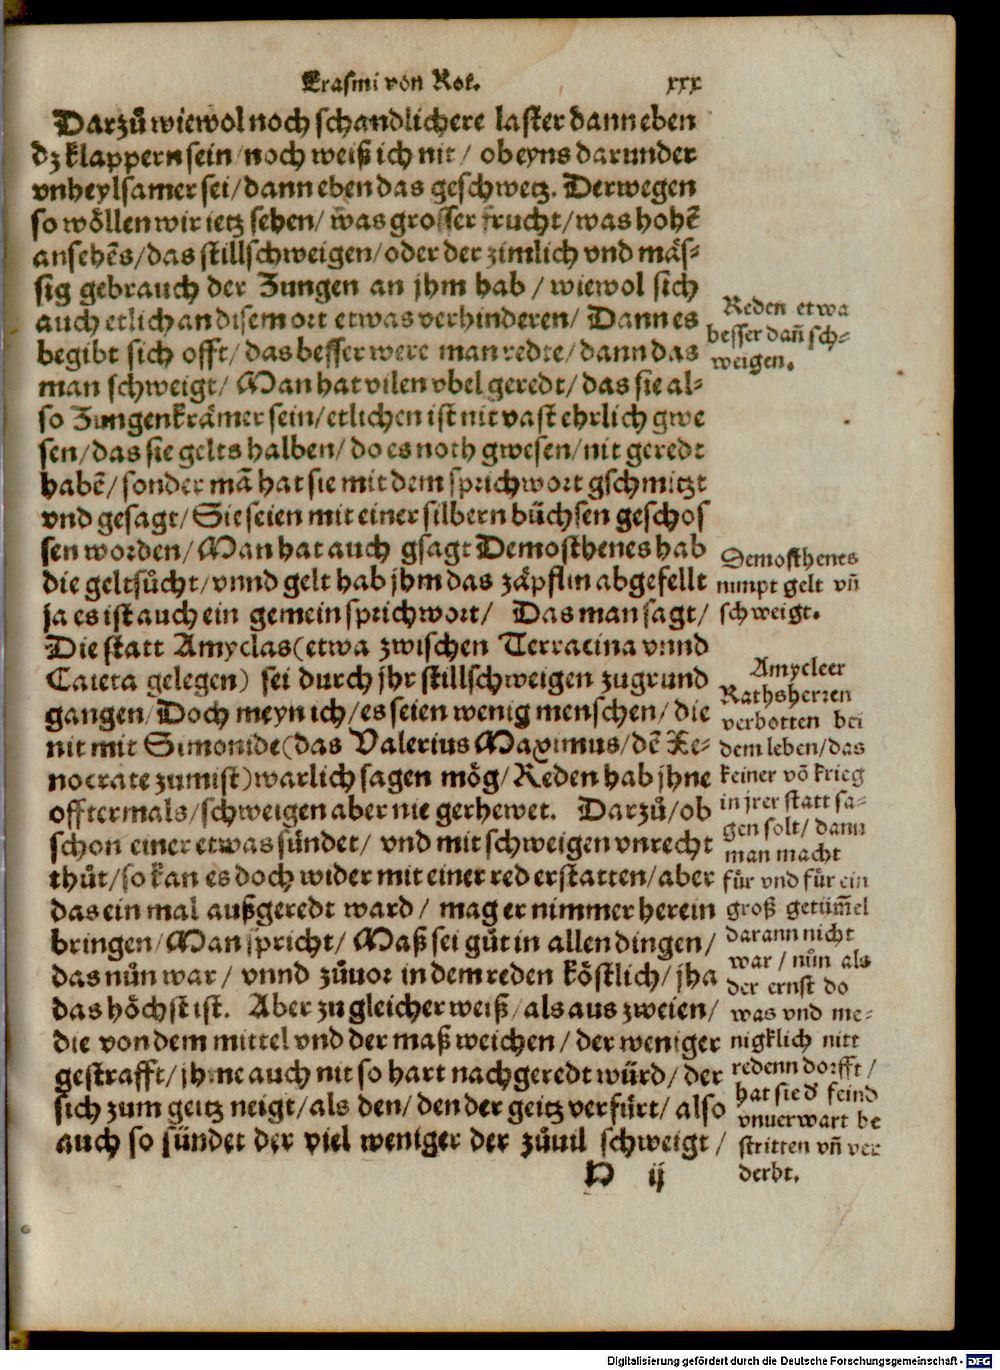 Erasmi von Rot.
xxx
Darzů wiewol noch schandlichere laster dann eben
dz klappern sein / noch weiß ich nit / ob eyns darunder
vnheylsamer sei / dann eben das geschwetz. Derwegen
so wöllen wir ietz sehen / was grosser frucht / was hohē
ansehēs / das stillschweigen / oder der zimlich vnd mäs⸗
sig gebrauch der Zungen an jhm hab / wiewol sich
auch etlich an disem ort etwas verhinderen / Dann es
begibt sich offt / das besser were man redte / dann das
man schweigt / Man hat vilen vbel geredt / das sie al⸗
so Zungenkrämer sein / etlichen ist nit vast ehrlich gwe
sen / das sie gelts halben / do es noth gwesen / nit geredt
habē / sonder mā hat sie mit dem sprichwort gschmitzt
vnd gesagt / Sie seien mit einer silbern büchsen geschos
sen worden / Man hat auch gsagt Demosthenes hab
die geltsůcht / vnnd gelt hab jhm das zäpflin abgefellt
ja es ist auch ein gemein sprichwort / Das man sagt /
Die statt Amyclas (etwa zwischen Terracina vnnd
Caieta gelegen) sei durch jhr stillschweigen zugrund
gangen / Doch meyn ich / es seien wenig menschen / die
nit mit Simonide (das Valerius Maximus / dē Xe⸗
nocrate zumist) warlich sagen mög / Reden hab jhne
offtermals / schweigen aber nie gerhewet. Darzů / ob
schon einer etwas sündet / vnd mit schweigen vnrecht
thůt / so kan es doch wider mit einer red erstatten / aber
das ein mal außgeredt ward / mag er nimmer herein
bringen / Man spricht / Maß sei gůt in allen dingen /
das nůn war / vnnd zůuor in dem reden köstlich / jha
das höchst ist. Aber zu gleicher weiß / als aus zweien /
die von dem mittel vnd der maß weichen / der weniger
gestrafft / jhme auch nit so hart nachgeredt würd / der
sich zum geitz neigt / als den / den der geitz verfürt / also
auch so sündet der viel weniger der zůuil schweigt /
D ij
Reden etwa
besser dañ sch⸗
weigen.
Demosthenes
nimpt gelt vñ
schweigt.
Amycleer
Rathsherren
verbotten bei
dem leben / das
keiner vō krieg
in jrer statt sa⸗
gen solt / dann
man macht
für vnd für ein
groß getüm̄el
darann nicht
war / nůn als
der ernst do
was vnd me⸗
nigklich nitt
redenn dorfft /
hat sie d̄ feind
vnuerwart be
stritten vñ ver
derbt.
Digitalisierung gefördert durch die Deutsche Forschungsgemeinschaft - DFG